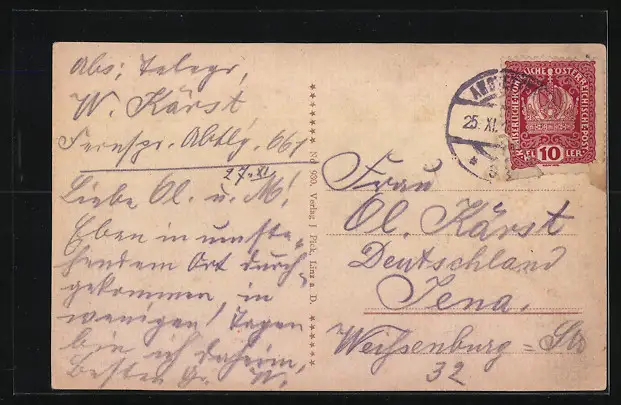 Abs: Telegr,
W. Kärst
Fernspr. Abtlg. 661
27. XI.
Liebe Ol. u. M!
Eben in umste-
hendem Ort durch-
gekommen, in
wenigen Tagen
bin ich daheim,
Besten Gr. W.
No 930. Verlag J. Pick, Linz a. D.
25. XI.
KAISERLICHE KÖNIGLICHE ÖSTERREICHISCHE POST
10
HELLER
Frau
Ol. Kärst
Deutschland
Jena,
Weissenburg = Str
32